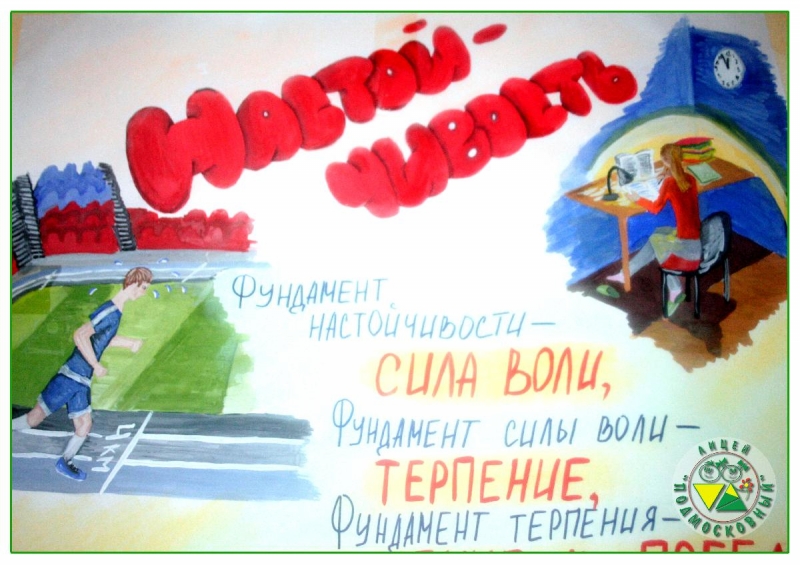 НАСТОЙ-
ЧИВОСТЬ
ФУНДАМЕНТ
НАСТОЙЧИВОСТИ —
СИЛА ВОЛИ,
ФУНДАМЕНТ СИЛЫ ВОЛИ —
ТЕРПЕНИЕ,
ФУНДАМЕНТ ТЕРПЕНИЯ —
4 КМ
ЛИЦЕЙ
"ПОДМОСКОВНЫЙ"